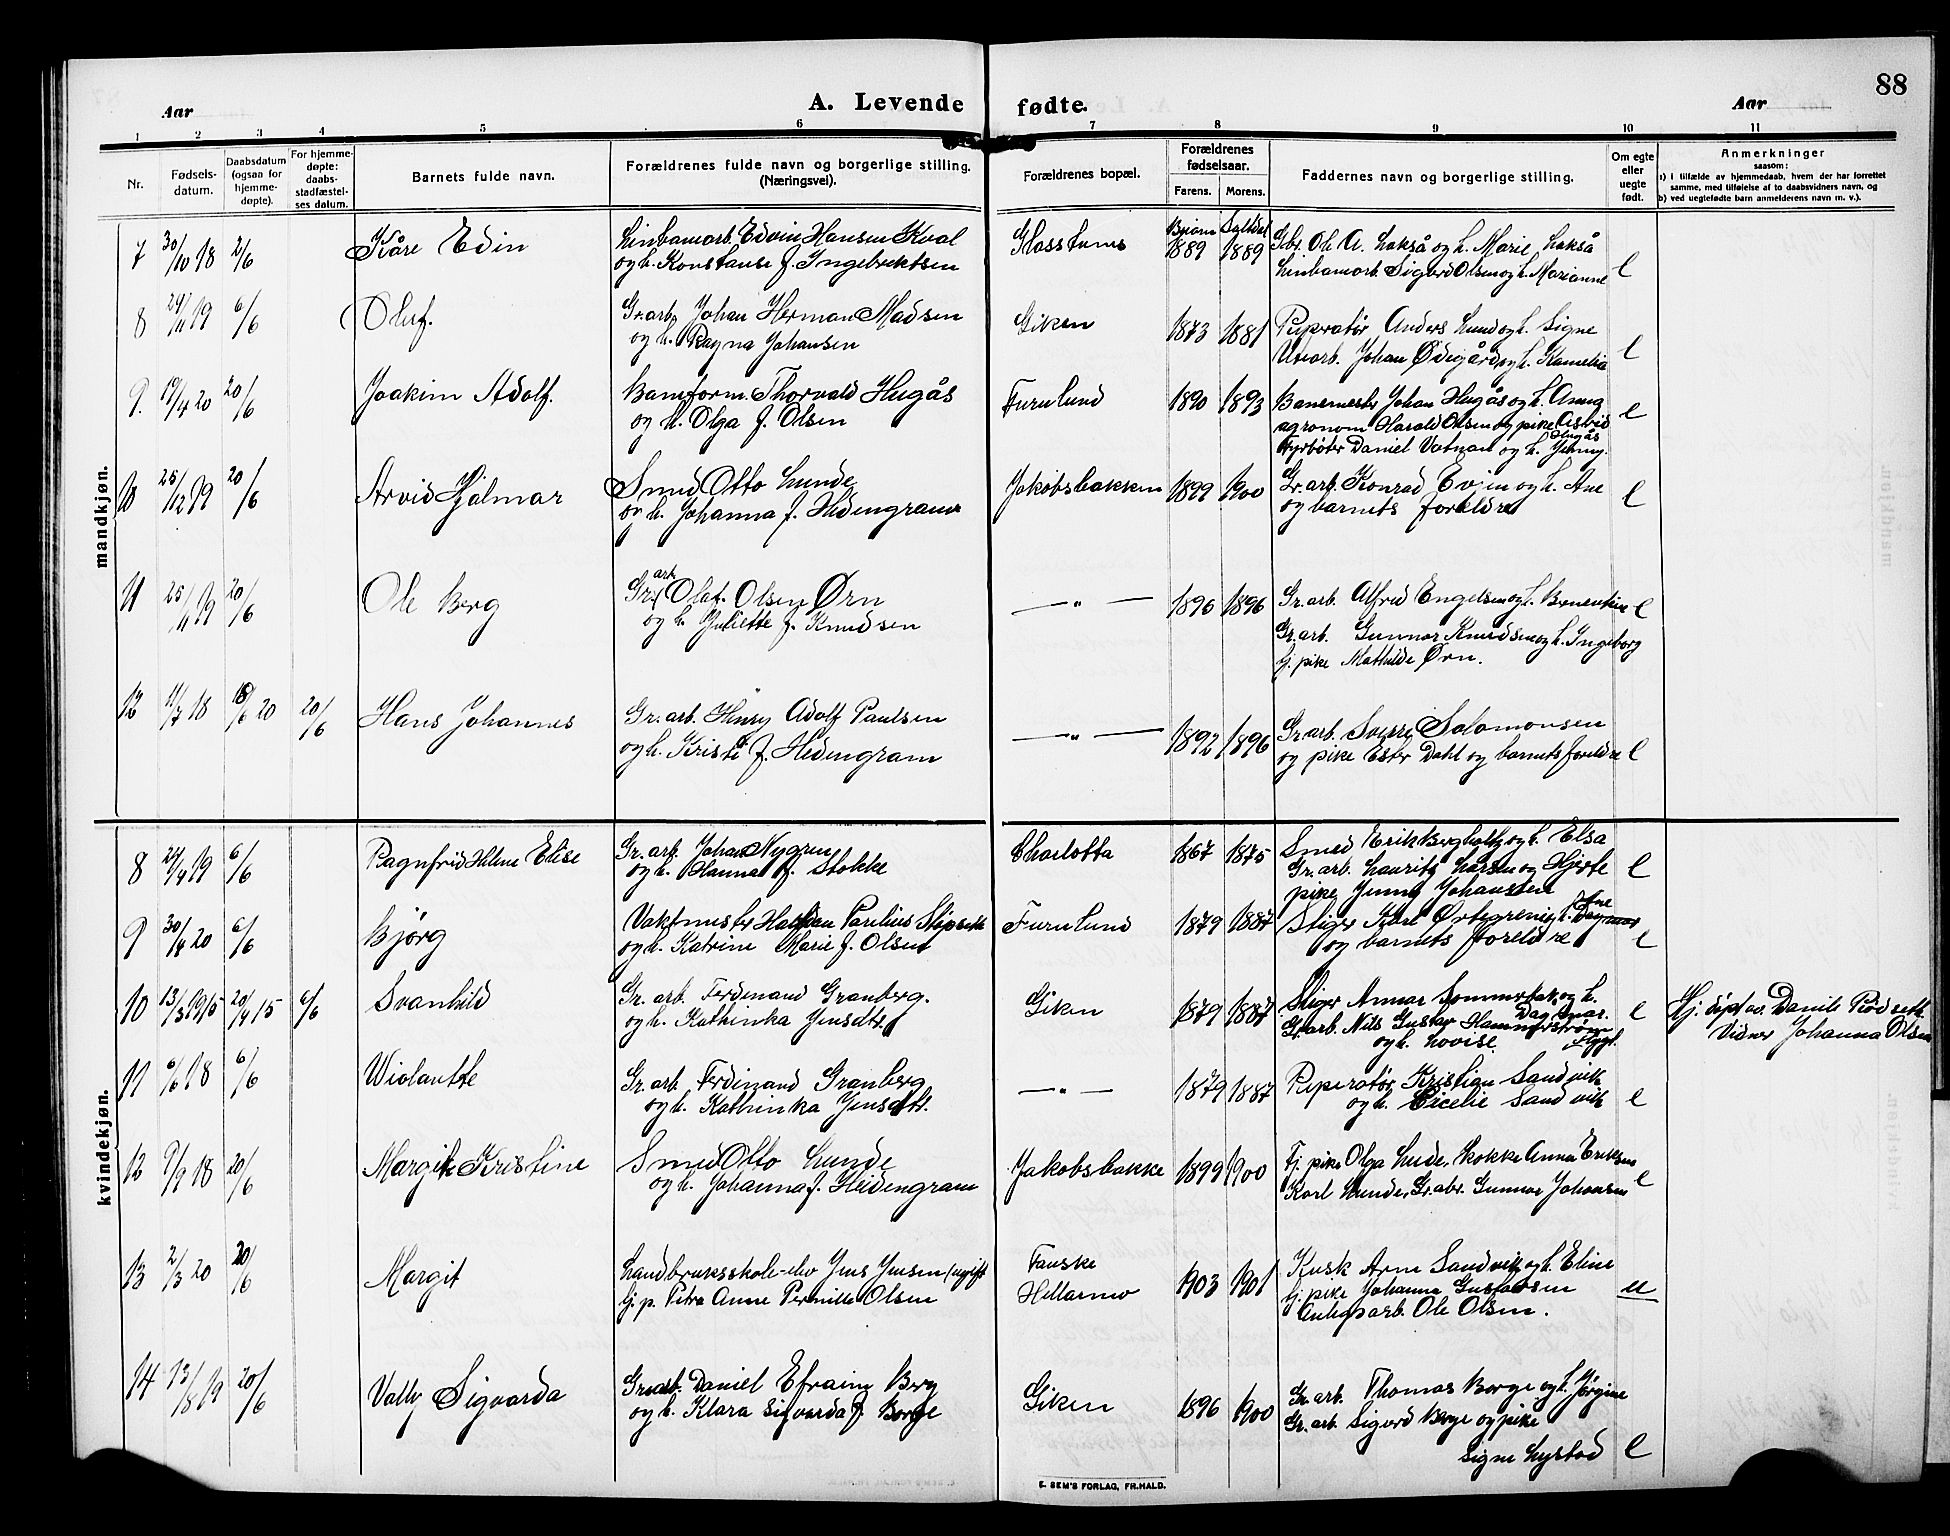 88
Aar A. Levende fødte. Aar
1 2 3 4 5 6 7 8 9 10 11
Nr. Fødsels-datum. Daabsdatum (ogsaa for hjemme-døpte). For hjemme-døpte: daabs-stadfæstel-ses datum. Barnets fulde navn. Forældrenes fulde navn og borgerlige stilling. (Næringsvei). Forældrenes bopæl. Forældrenes fødselsaar. Farens. Morens. Faddernes navn og borgerlige stilling. Om egte eller uegte født. Anmerkninger saasom: a) i tilfælde av hjemmedaab, hvem der har forrettet samme, med tilføielse af to daabsvidners navn, og b) ved uegtefødte barn anmelderens navn m. v.).
mandkjøn.
7 30/10 18 2/6 Kåre Edin Linbanarb. Edvin Hansen Kval Glasstunes 1889 1889 Gbr. Ole A. Lakså og h. Marie Lakså
og h. Konstanse f. Ingebriktsen Linbanearb. Sigurd Olsen og h. Marianne e
8 19 6/6 Oluf. Gr. arb. Johan Herman Madsen Giken 1873 1881 Reperatør Anders Lund og h. Signe
og h. Ragna Johansen Utearb. Johan Ødegård og h. Kamelia e
9. 19/4 20 20/6 Joakim Adolf. Banform. Thorvald Hugås Furulund 1890 1893 Banemester Johan Hugås og h. Anna
og h. Olga f. Olsen agronom Harald Olsen og pike Asbid Hugås e
Fyrbøter Daniel Vatnan og h. Jenny.
10 26/12 19 20/6 Arvid Hjalmar Smed Otto Lunde Jakobsbakken 1899 1900 Gr. arb. Konrad Evjen og h. Ane
og h. Johanna f. Hedengram og barnets foreldre e
11 25/11 19 20/6 Ole Berg Gr. arb. Olaf Olsen Ørn — " — 1890 1896 Gr. arb. Alfred Engelsen og h. e
og h. Juliette f. Knudsen Gr. arb. Gunnar Knudsen og h. Ingeborg
tj. pike Mathilde Ørn.
12 11/7 18 18/6 20 20/6 Hans Johannes Gr. arb. Henry Adolf Paulsen — " — 1892 1896 Gr. arb. Sverre Salomonsen
og h. Kristi f. Hedengram og pike Ester Dahl og barnets foreldre e
kvindekjøn.
8 29/4 19 6/6 Ragnfrid Helene Elise Gr. arb. Johan Nygren Charlotta 1867 1875 Smed Erik Bygholt og h. Elsa
og h. Hanna f. Stokke Gr. arb. Lauritz Larsen og Hjørte e
pike Jenny Johansen
9 30/4 20 6/6 Bjørg Vaktmester Halvdan Parelius Slipseth Furulund 1879 1887 Stiger Karl Ørtegren og h. Ane Dagmar
og h. Katrine Marie f. Olsen og barnets foreldre e
10 13/3 1915 20/4 15 6/6 Svanhild Gr. arb. Ferdinand Granberg. Giken 1879 1887 Stiger Annar Sommerbak og h. Dagmar. e Hj. døpt av Danile Rødseth
og h. Kathinka Jensdtr. Gr. arb. Nils Gustav Hammerstrøm og h. Lovise. Vidner Johanna Olsen
11 6/6 18 6/6 Wiolantte Gr. arb. Ferdinand Granberg — " — 1879 1887 Reperatør Kristian Sandvik
og h. Kathinka Jensdtr. og h. Cicelie Sandvik e
12 9/9 18 20/6 Margith Kristine Smed Otto Lunde Jakobsbakke 1899 1900 Tj. pike Olga Lunde, kokke Anna Eriksen
og h. Johanna f. Heidengram Karl Lunde, Gr. abr. Gunnar Johansen e
13 2/3 20 20/6 Margit Landbruksskole-elev Jens Jensen (ugift Fauske 1903 1901 Kusk Arne Sandvik og h. Eline
tj. p. Petra Anne Pernille Olsen Hellarmo tj. pike Johanna Gustavsen u
Anlegsarb. Ole Olsen.
14 13/8 19 20/6 Vally Sigvarda Gruarb. Daniel Efraim Berg Giken 1896 1900 Gr. arb. Thomas Borge og h. Jørgine
og h. Klara Sigvarda f. Borge Gr. arb. Sigurd Berge og pike
Signe Lystad e
E. SEM'S FORLAG, FR.HALD.